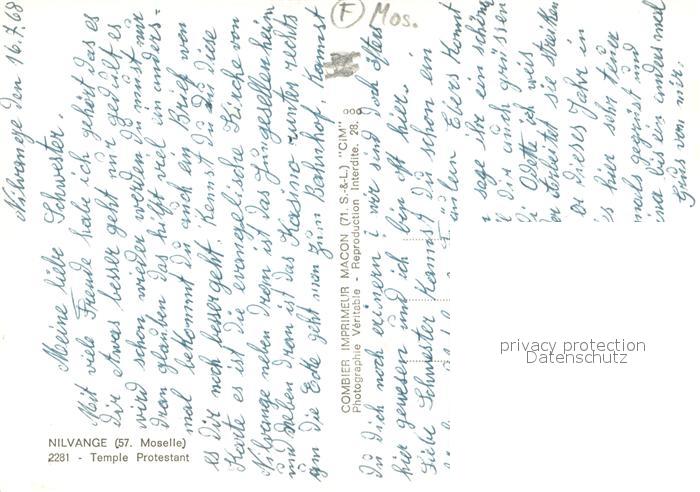 Nilvange den 16.7.68
Meine liebe Schwester.
Mit viele Freude habe ich gehört das es
Dir etwas besser geht nur geduld es
wird schon wieder werden Du must nur
dran glauben das hilft viel ein anders-
mal bekommst Du auch ein Brief wen
es dir noch besser geht. Kennst Du diese
Karte es ist die evangelische Kirche von
Nilvange neben dran ist das Jugesellenheim
und neben dran ist das Kasino runter rechts
um die Ecke geht man zum Bahnhof. Kannst
Du Dich noch erinern? wir sind doch öfters
hier gewesen und ich bin oft hier.
Liebe Schwester Kannst du schon ein
Eiers Komt
sage ihr ein schöne
Dir auch grüssen
Odette ich weis
arbeitet sie streiken
er dieses Jahr in
es hier sehr teuer
mals gegrüst und
bis ein andersmal
Gruss von mir.
F
Mos.
COMBIER IMPRIMEUR MACON (71. S.-&-L.) "CIM"
Photographie Véritable - Reproduction Interdite. 28.
NILVANGE (57. Moselle)
2281 - Temple Protestant
privacy protection
Datenschutz